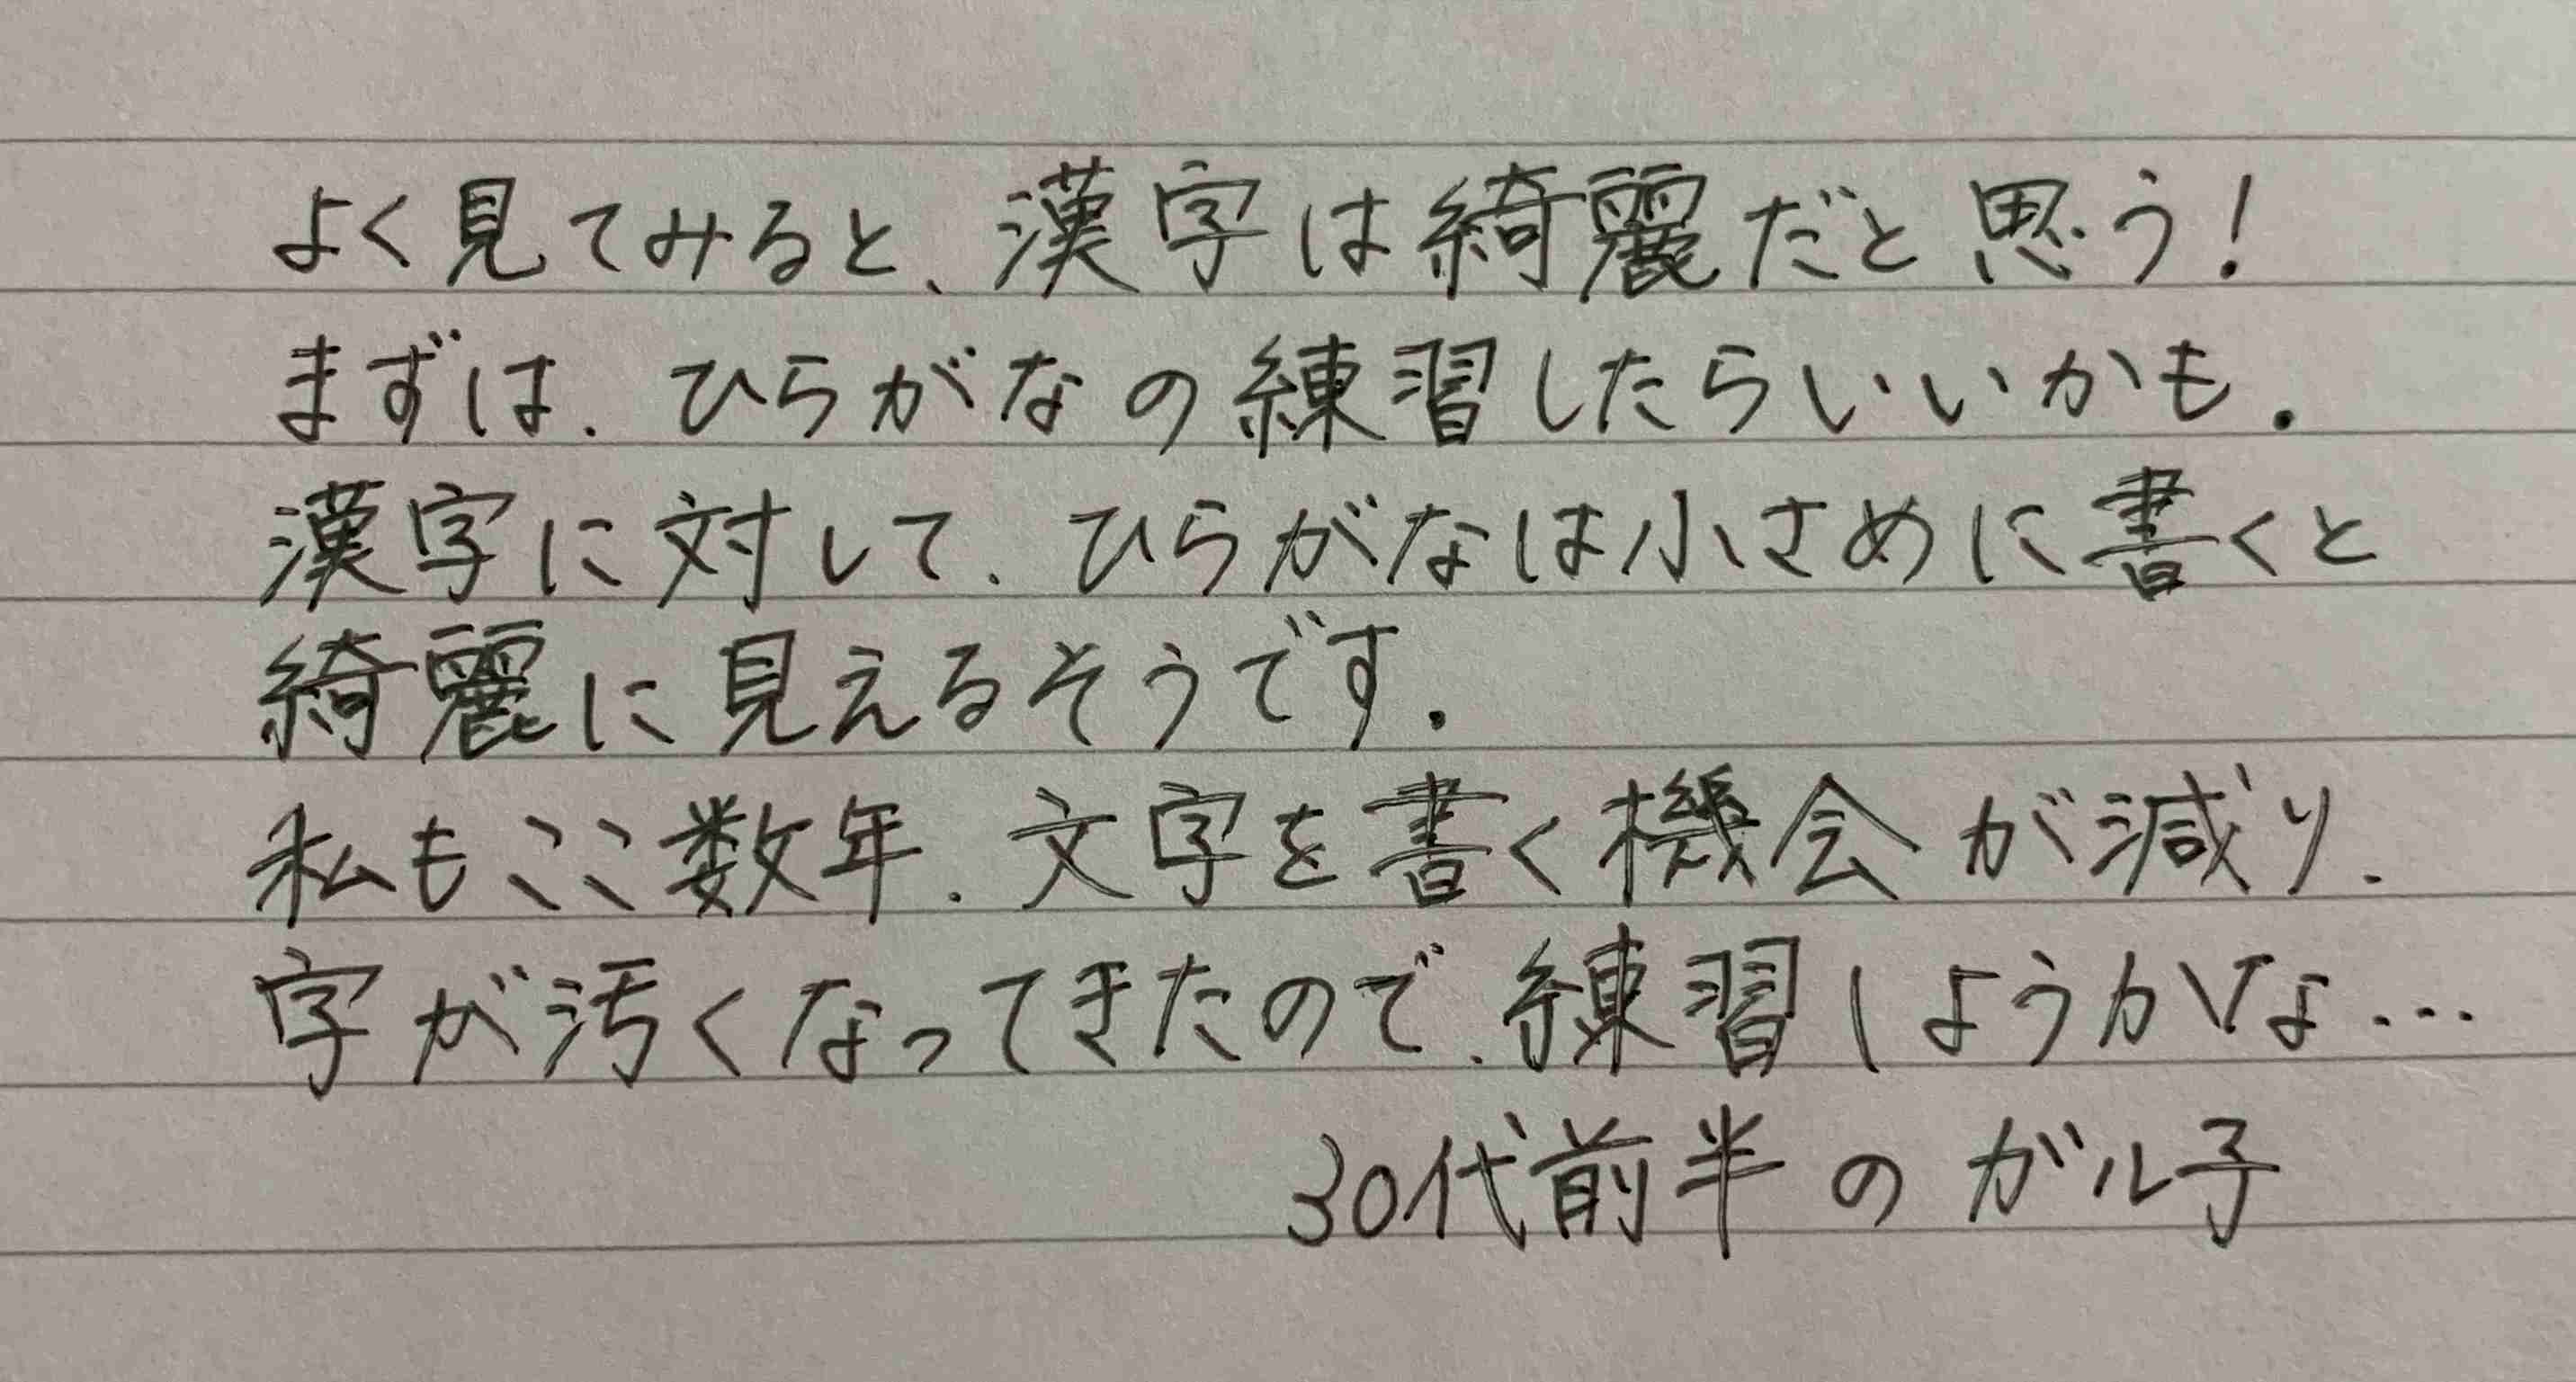 よく見てみると、漢字は綺麗だと思う!
まずは、ひらがなの練習したらいいかも。
漢字に対して、ひらがなは小さめに書くと
綺麗に見えるそうです。
私もここ数年、文字を書く機会が減り、
字が汚くなってきたので、練習しようかな…
30代前半のガル子